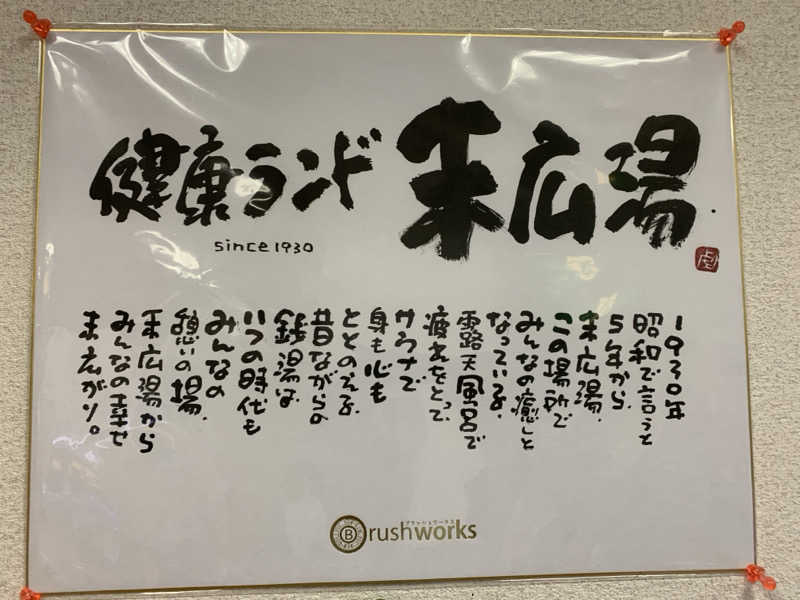 健康ランド 末広湯
since 1930
1930年
昭和で言うと
5年から
末広湯、
この場所で
みんなの癒しと
なっている。
露天風呂で
疲れをとって
サウナで
身も心も
ととのえる
昔ながらの
銭湯は
いつの時代も
みんなの
憩いの場、
末広湯から
みんなの幸せ
まえがり。
ブラッシュワークス
Brushworks